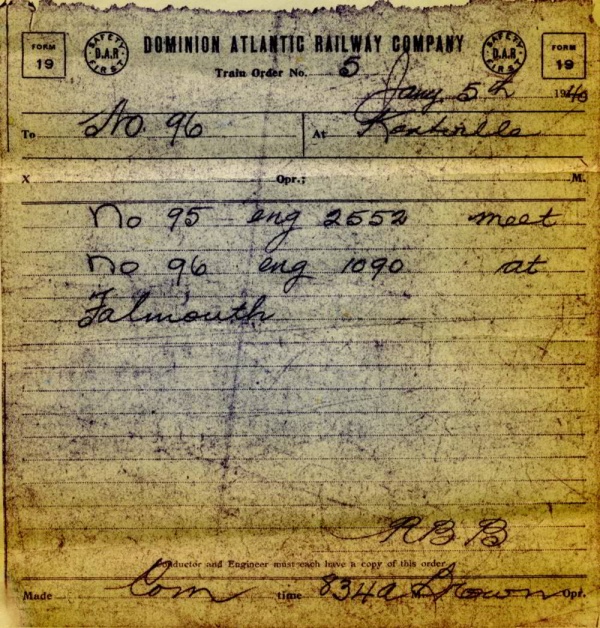 FORM 19 SAFETY D.A.R FIRST DOMINION ATLANTIC RAILWAY COMPANY SAFETY D.A.R FIRST FORM 19
Train Order No. 5
Jany 5th 1940
To No. 96 At Kentville
X Opr.; M.
No 95 eng 2552 meet
No 96 eng 1090 at
Falmouth
RBB
Conductor and Engineer must each have a copy of this order
Made Com time 834a M Brown Opr.